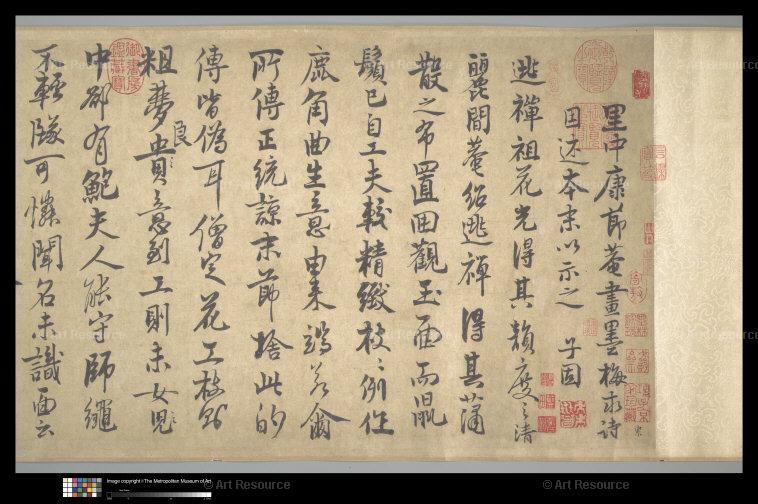 里中康節菴畫墨梅求詩
因述本末以示之 子固
逃禪祖花光得其韻度之清
麗閒菴紹逃禪得其蕭
散之布置回觀玉面而鼠
鬚已自工夫較精緻枝枝例作
鹿角曲生意由來端若爾
所傳正統諒末節捨此的
傳皆偽耳僧定花工枝則
粗夢良意到工則未女兒
中却有鮑夫人能守師繩
不輟墜可憐聞名未識面云
Image copyright © The Metropolitan Museum of Art
© Art Resource
© Art Resource